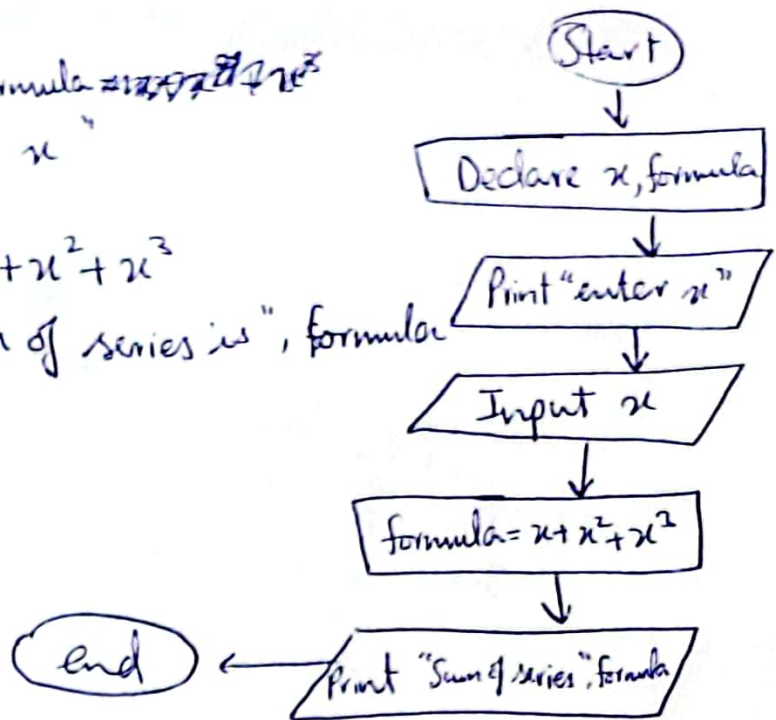 rmula
x "
+ x² + x³
of series is", formula
Start
Declare x, formula
Print "enter x"
Input x
formula = x + x² + x³
Print "Sum of series", formula
end